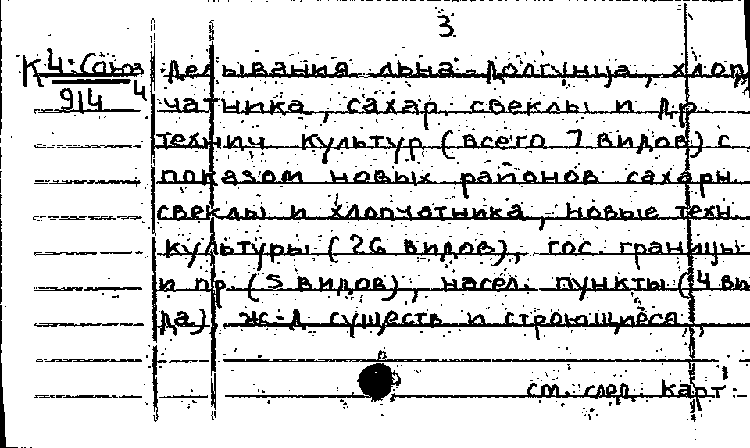 3
К 4:Союз
9/4 4
делывания льна-долгунца, хлоп
чатника, сахар. свеклы и др.
технич культур (всего 7 видов) с
показом новых районов сахарн.
свеклы и хлопчатника, новые техн.
культуры (26 видов), гос. границы
и пр. (5 видов), насел. пункты (4 ви
да), ж-д существ и строющиеся,
см. след. карт.